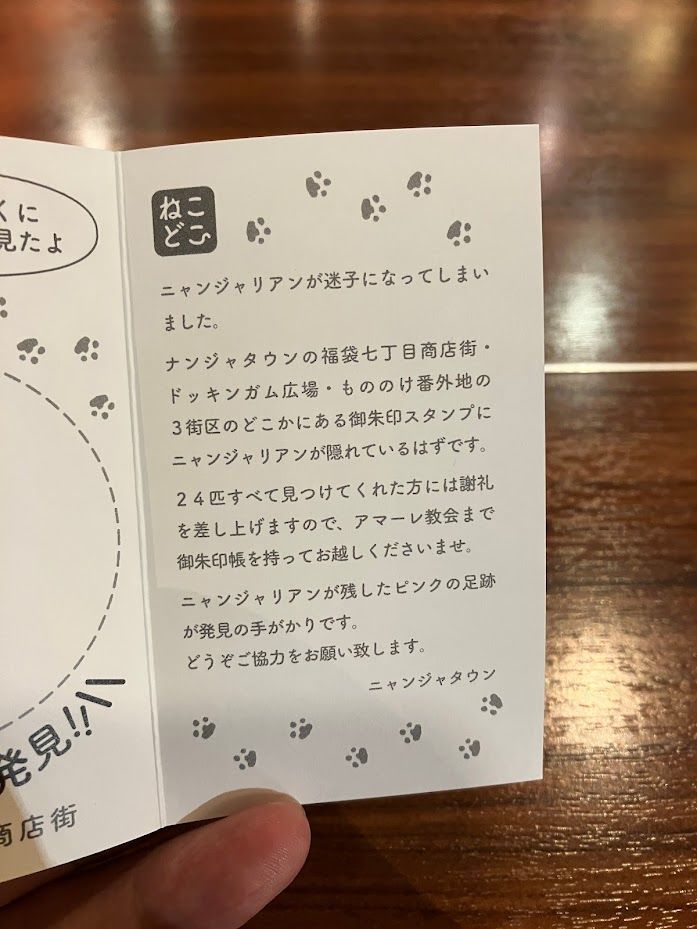 くに
見たよ
ねこ
どこ
ニャンジャリアンが迷子になってしまい
ました。
ナンジャタウンの福袋七丁目商店街・
ドッキンガム広場・もののけ番外地の
3街区のどこかにある御朱印スタンプに
ニャンジャリアンが隠れているはずです。
24匹すべて見つけてくれた方には謝礼
を差し上げますので、アマーレ教会まで
御朱印帳を持ってお越しくださいませ。
ニャンジャリアンが残したピンクの足跡
が発見の手がかりです。
どうぞご協力をお願い致します。
ニャンジャタウン
発見!!
商店街